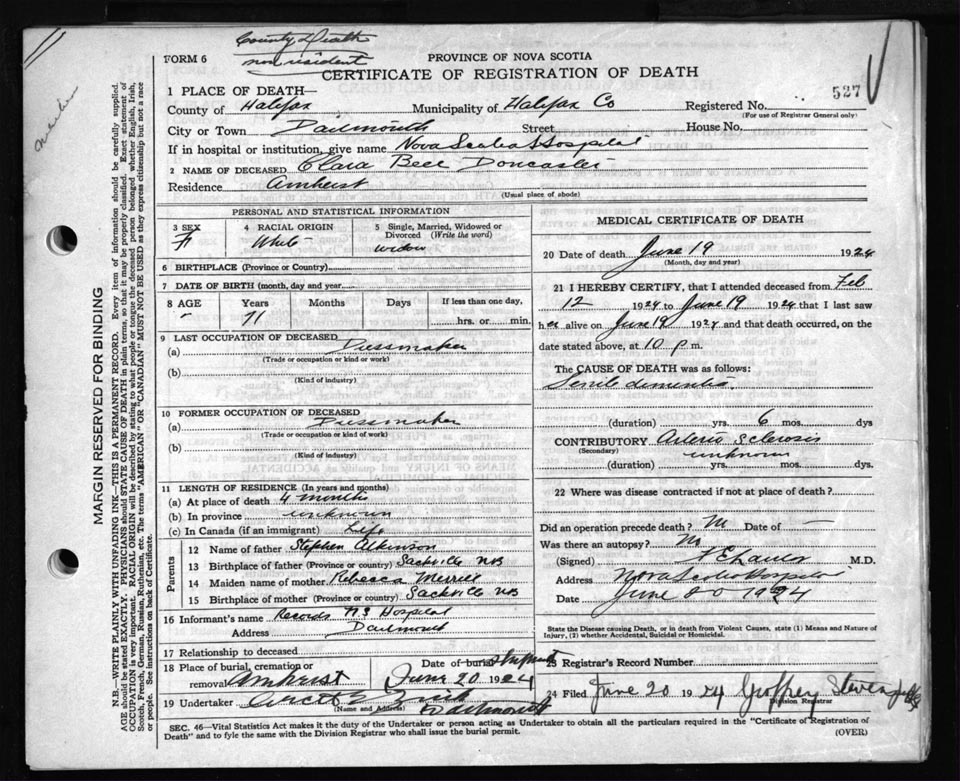 County & Death
non resident
FORM 6
PROVINCE OF NOVA SCOTIA
CERTIFICATE OF REGISTRATION OF DEATH
1 PLACE OF DEATH—
County of Halifax Municipality of Halifax Co Registered No. 527
(For use of Registrar General only)
City or Town Dartmouth Street House No.
If in hospital or institution, give name Nova Scotia Hospital
2 NAME OF DECEASED Clara Bell Doncaster
Residence Amherst
(Usual place of abode)
PERSONAL AND STATISTICAL INFORMATION
3 SEX F
4 RACIAL ORIGIN White
5 Single, Married, Widowed or Divorced (Write the word) widow
6 BIRTHPLACE (Province or Country)
7 DATE OF BIRTH (month, day and year)
8 AGE Years Months Days If less than one day,
71 hrs. or min.
9 LAST OCCUPATION OF DECEASED
(a) Dressmaker
(Trade or occupation or kind of work)
(b)
(Kind of industry)
10 FORMER OCCUPATION OF DECEASED
(a) Dressmaker
(Trade or occupation or kind of work)
(b)
(Kind of industry)
11 LENGTH OF RESIDENCE (In years and months)
(a) At place of death 4 months
(b) In province unknown
(c) In Canada (if an immigrant) Life
Parents
12 Name of father Stephen Atkinson
13 Birthplace of father (Province or Country) Sackville NB
14 Maiden name of mother Rebecca Merrill
15 Birthplace of mother (Province or Country) Sackville NB
16 Informant's name Records N.S Hospital
Address Dartmouth
17 Relationship to deceased
18 Place of burial, cremation or removal Amherst
Date of burial Shipment
June 20 1924
19 Undertaker
(Name and Address) Dartmouth
MEDICAL CERTIFICATE OF DEATH
20 Date of death June 19 1924
(Month, day and year)
21 I HEREBY CERTIFY, that I attended deceased from Feb
12 1924 to June 19 1924 that I last saw
her alive on June 19 1924 and that death occurred, on
date stated above, at 10 p m.
The CAUSE OF DEATH was as follows:
Senile dementia
(duration) yrs. 6 mos. dys
CONTRIBUTORY Arterio Sclerosis
(Secondary) unknown
(duration) yrs. mos. dys.
22 Where was disease contracted if not at place of death?
Did an operation precede death? No Date of —
Was there an autopsy? No
(Signed) M.D.
Address Nova Scotia Hospital
Date June 20 1924
State the Disease causing Death, or in death from Violent Causes, state (1) Means and Nature of
Injury, (2) whether Accidental, Suicidal or Homicidal.
23 Registrar's Record Number
24 Filed June 20 1924 Geoffrey Stevens
Division Registrar
SEC. 46—Vital Statistics Act makes it the duty of the Undertaker or person acting as Undertaker to obtain all the particulars required in the "Certificate of Registration of
Death" and to fyle the same with the Division Registrar who shall issue the burial permit. (OVER)
MARGIN RESERVED FOR BINDING
N.B.—WRITE PLAINLY WITH UNFADING INK—THIS IS A PERMANENT RECORD. Every item of information should be carefully supplied.
AGE should be stated EXACTLY. PHYSICIANS should STATE CAUSE OF DEATH in plain terms, so that it may be properly classified. Exact statement of
OCCUPATION is very important. RACIAL ORIGIN will be described by stating to what people or tongue the deceased person belonged whether English, Irish,
Scotch, French, German, Russian, Ruthenian, etc. The terms "AMERICAN" OR "CANADIAN" MUST NOT BE USED as they express citizenship but not a race
or people. See instructions on back of Certificate.